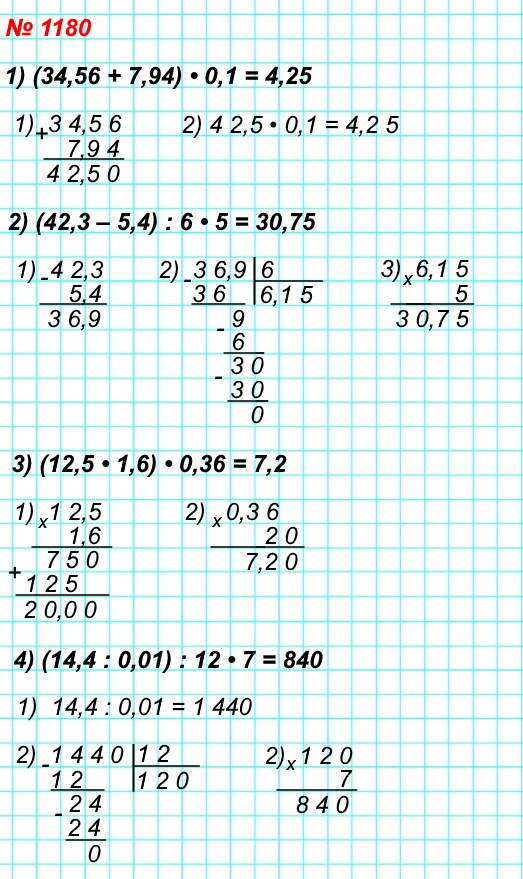 № 1180
1) (34,56 + 7,94) • 0,1 = 4,25
1) + 3 4,5 6
7,9 4
4 2,5 0
2) 4 2,5 • 0,1 = 4,2 5
2) (42,3 – 5,4) : 6 • 5 = 30,75
1) - 4 2,3
5,4
3 6,9
2) - 3 6,9 6
3 6 6,1 5
- 9
6
- 3 0
3 0
0
3) x 6,1 5
5
3 0,7 5
3) (12,5 • 1,6) • 0,36 = 7,2
1) x 1 2,5
1,6
+ 7 5 0
1 2 5
2 0,0 0
2) x 0,3 6
2 0
7,2 0
4) (14,4 : 0,01) : 12 • 7 = 840
1) 14,4 : 0,01 = 1 440
2) - 1 4 4 0 1 2
1 2 1 2 0
- 2 4
2 4
0
2) x 1 2 0
7
8 4 0